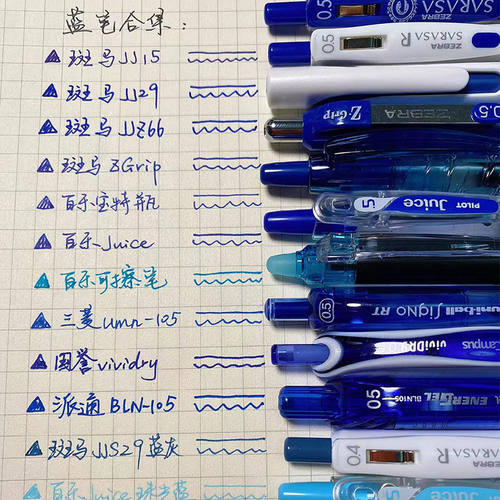 蓝笔合集:
斑马JJ15
斑马JJ29
斑马JJZ66
斑马ZGrip
百乐宝特瓶
百乐Juice
百乐可擦笔
三菱umn-105
国誉vividry
派通BLN-105
斑马JJS29蓝灰
百乐Juice珠光蓝
0.5 SARASA ZEBRA
0.5 SARASA R ZEBRA
Z-Grip ZEBRA 0.5
05 Juice PILOT
0.5 uni-ball Signo RT
ViViDRY Campus
05 ENERGEL BLN105
0.4 SARASA R ZEBRA